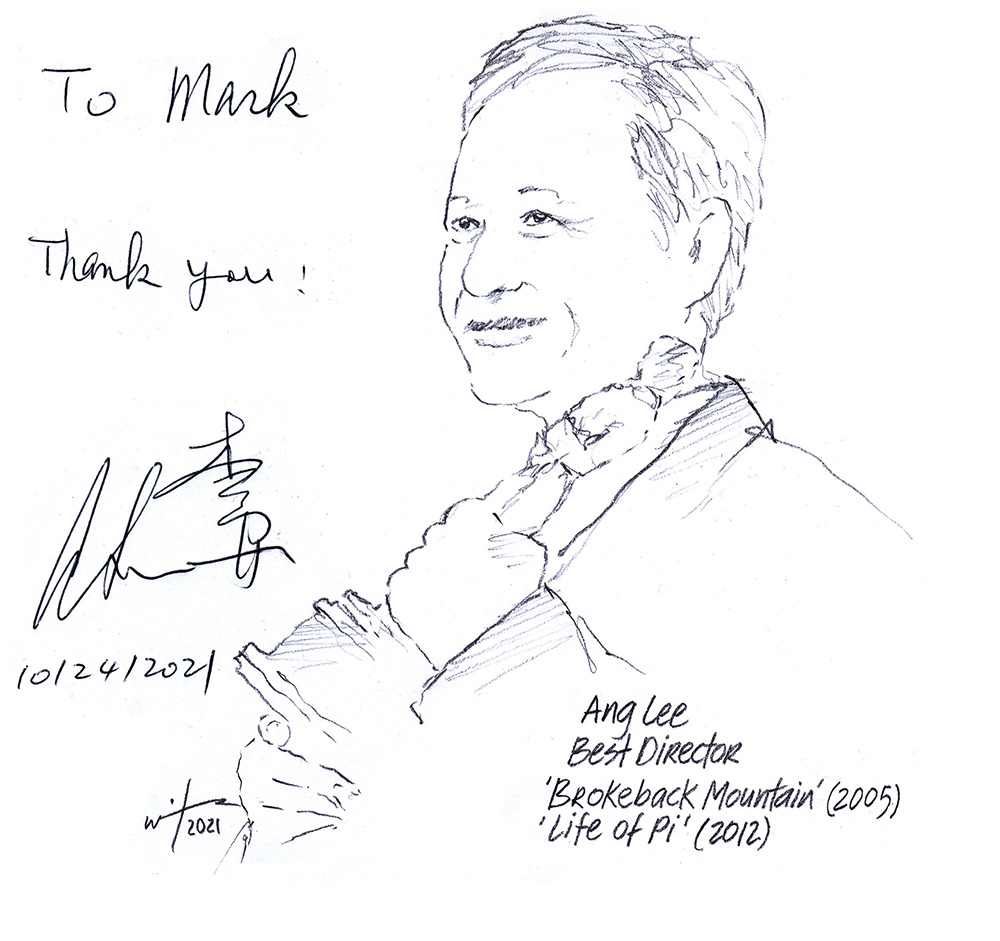 To Mark
Thank you!
李安
10/24/2021
2021
Ang Lee
Best Director
'Brokeback Mountain' (2005)
'Life of Pi' (2012)